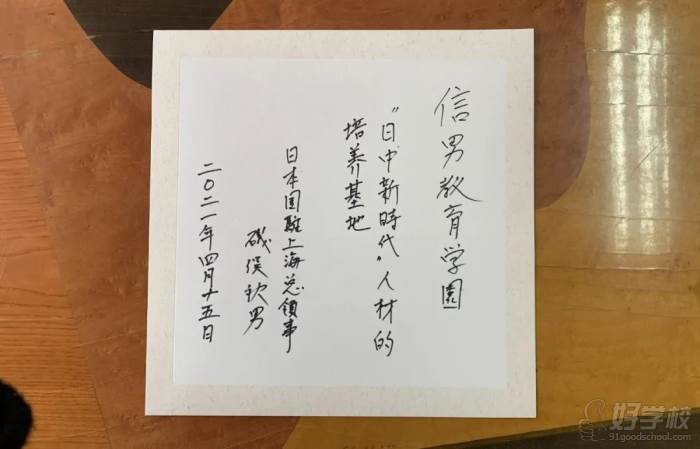 信男教育学園
“日中新時代”人材的
培养基地
日本国駐上海总領事
磯俣秋男
二〇二一年四月十五日
好学校
91goodschool.com